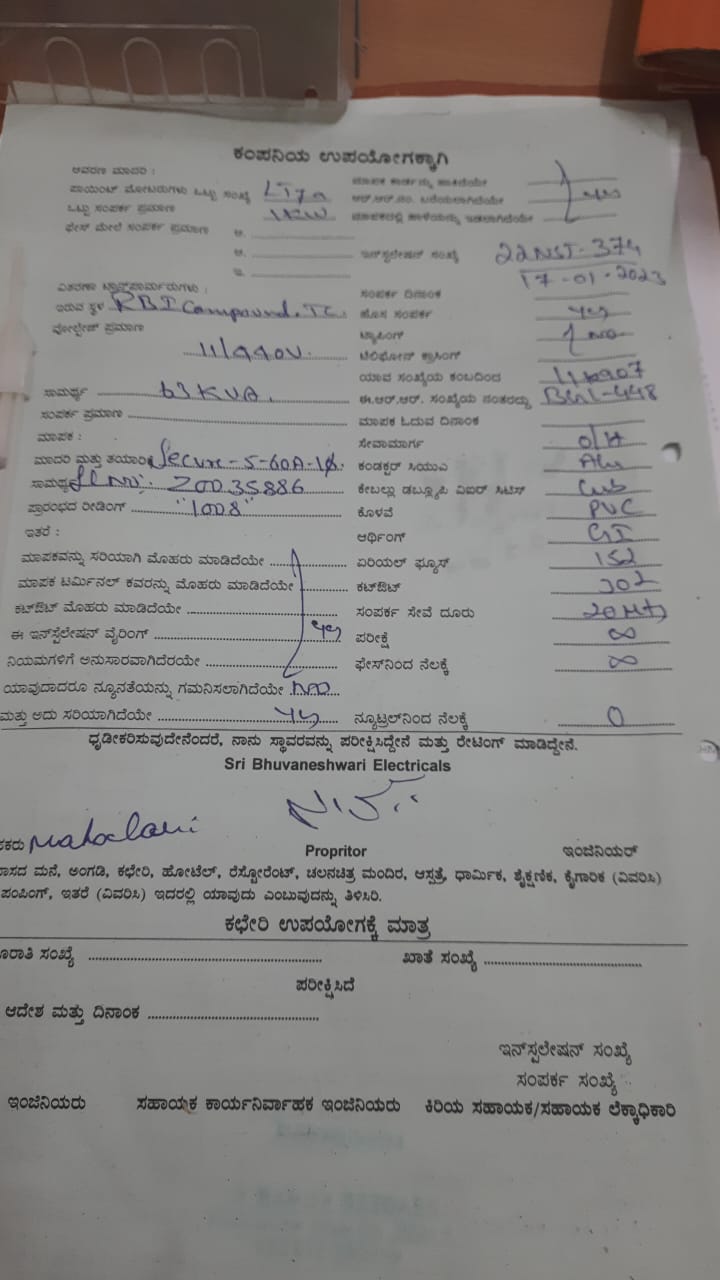 ಕಂಪನಿಯ ಉಪಯೋಗಕ್ಕಾಗಿ
ಆವರಣ ಮಾದರಿ :
ಪಾಯಿಂಟ್ ಮೋಟರುಗಳು ಒಟ್ಟು ಸಂಖ್ಯೆ yes
ಒಟ್ಟು ಸಂಪರ್ಕ ಪ್ರಮಾಣ 1KW
ಫೇಸ್ ಮೇಲೆ ಸಂಪರ್ಕ ಪ್ರಮಾಣ ಅ.
ಆ. ಇನ್‌ಸ್ಟಲೇಷನ್ ಸಂಖ್ಯೆ 22NST-374
ಇ. 17-01-2023
ವಿತರಣಾ ಟ್ರಾನ್ಸ್‌ಫಾರ್ಮರುಗಳು : ಸಂಪರ್ಕ ದಿನಾಂಕ
ಇರುವ ಸ್ಥಳ RBI Compound. TC. ಹೊಸ ಸಂಪರ್ಕ yes
ವೋಲ್ಟೇಜ್ ಪ್ರಮಾಣ ಟ್ಯಾಪಿಂಗ್ No
11/440V. ಟೆಲಿಫೋನ್ ಕ್ರಾಸಿಂಗ್
ಯಾವ ಸಂಖ್ಯೆಯ ಕಂಬದಿಂದ
ಸಾಮರ್ಥ್ಯ 63KVA. ಈ.ಆರ್.ಆರ್. ಸಂಖ್ಯೆಯ ನಂತರದ್ದು
ಸಂಪರ್ಕ ಪ್ರಮಾಣ ಮಾಪಕ ಓದುವ ದಿನಾಂಕ
ಮಾಪಕ : ಸೇವಾಮಾರ್ಗ O/H
ಮಾದರಿ ಮತ್ತು ತಯಾರಿ Secure-5-60A-1ϕ. ಕಂಡಕ್ಟರ್ ಸಿಯುಎ
ಸಾಮರ್ಥ್ಯ Sl No: Z0035886 ಕೇಬಲ್ಲು ಡಬ್ಲ್ಯೂಪಿ ವಿಐಆರ್ ಸಿಟಿಸ್
ಪ್ರಾರಂಭದ ರೀಡಿಂಗ್ "1008" ಕೊಳವೆ PVC
ಇತರೆ : ಆರ್ಥಿಂಗ್ GI
ಮಾಪಕವನ್ನು ಸರಿಯಾಗಿ ಮೊಹರು ಮಾಡಿದೆಯೇ ಏರಿಯಲ್ ಫ್ಯೂಸ್ 152
ಮಾಪಕ ಟರ್ಮಿನಲ್ ಕವರನ್ನು ಮೊಹರು ಮಾಡಿದೆಯೇ ಕಟ್‌ಔಟ್ 302
ಕಟ್‌ಔಟ್ ಮೊಹರು ಮಾಡಿದೆಯೇ ಸಂಪರ್ಕ ಸೇವೆ ದೂರು 20 Mts
ಈ ಇನ್‌ಸ್ಟಲೇಷನ್ ವೈರಿಂಗ್ yes ಪರೀಕ್ಷೆ ∞
ನಿಯಮಗಳಿಗೆ ಅನುಸಾರವಾಗಿದೆರಯೇ ಫೇಸ್‌ನಿಂದ ನೆಲಕ್ಕೆ ∞
ಯಾವುದಾದರೂ ನ್ಯೂನತೆಯನ್ನು ಗಮನಿಸಲಾಗಿದೆಯೇ No
ಮತ್ತು ಅದು ಸರಿಯಾಗಿದೆಯೇ yes ನ್ಯೂಟ್ರಲ್‌ನಿಂದ ನೆಲಕ್ಕೆ 0
ಧೃಡೀಕರಿಸುವುದೇನೆಂದರೆ, ನಾನು ಸ್ಥಾವರವನ್ನು ಪರೀಕ್ಷಿಸಿದ್ದೇನೆ ಮತ್ತು ರೇಟಿಂಗ್ ಮಾಡಿದ್ದೇನೆ.
Sri Bhuvaneshwari Electricals
Propritor ಇಂಜಿನಿಯರ್
ಮನೆ, ಅಂಗಡಿ, ಕಛೇರಿ, ಹೋಟೆಲ್, ರೆಸ್ಟೋರೆಂಟ್, ಚಲನಚಿತ್ರ ಮಂದಿರ, ಆಸ್ಪತ್ರೆ, ಧಾರ್ಮಿಕ, ಶೈಕ್ಷಣಿಕ, ಕೈಗಾರಿಕ (ವಿವರಿಸಿ)
ಪಂಪಿಂಗ್, ಇತರೆ (ವಿವರಿಸಿ) ಇದರಲ್ಲಿ ಯಾವುದು ಎಂಬುವುದನ್ನು ತಿಳಿಸಿರಿ.
ಕಛೇರಿ ಉಪಯೋಗಕ್ಕೆ ಮಾತ್ರ
ಸಂಖ್ಯೆ ಖಾತೆ ಸಂಖ್ಯೆ
ಪರೀಕ್ಷಿಸಿದೆ
ಆದೇಶ ಮತ್ತು ದಿನಾಂಕ
ಇನ್‌ಸ್ಪಲೇಷನ್ ಸಂಖ್ಯೆ
ಸಂಪರ್ಕ ಸಂಖ್ಯೆ
ಇಂಜಿನಿಯರು ಸಹಾಯಕ ಕಾರ್ಯನಿರ್ವಾಹಕ ಇಂಜಿನಿಯರು ಕಿರಿಯ ಸಹಾಯಕ/ಸಹಾಯಕ ಲೆಕ್ಕಾಧಿಕಾರಿ